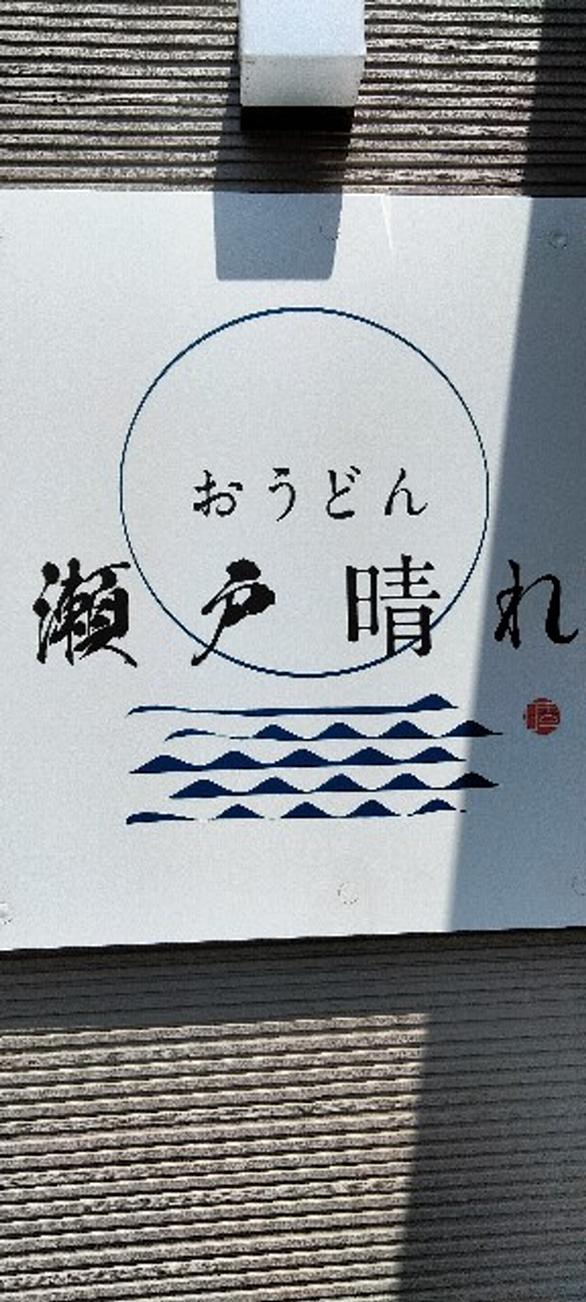 おうどん
瀬戸晴れ